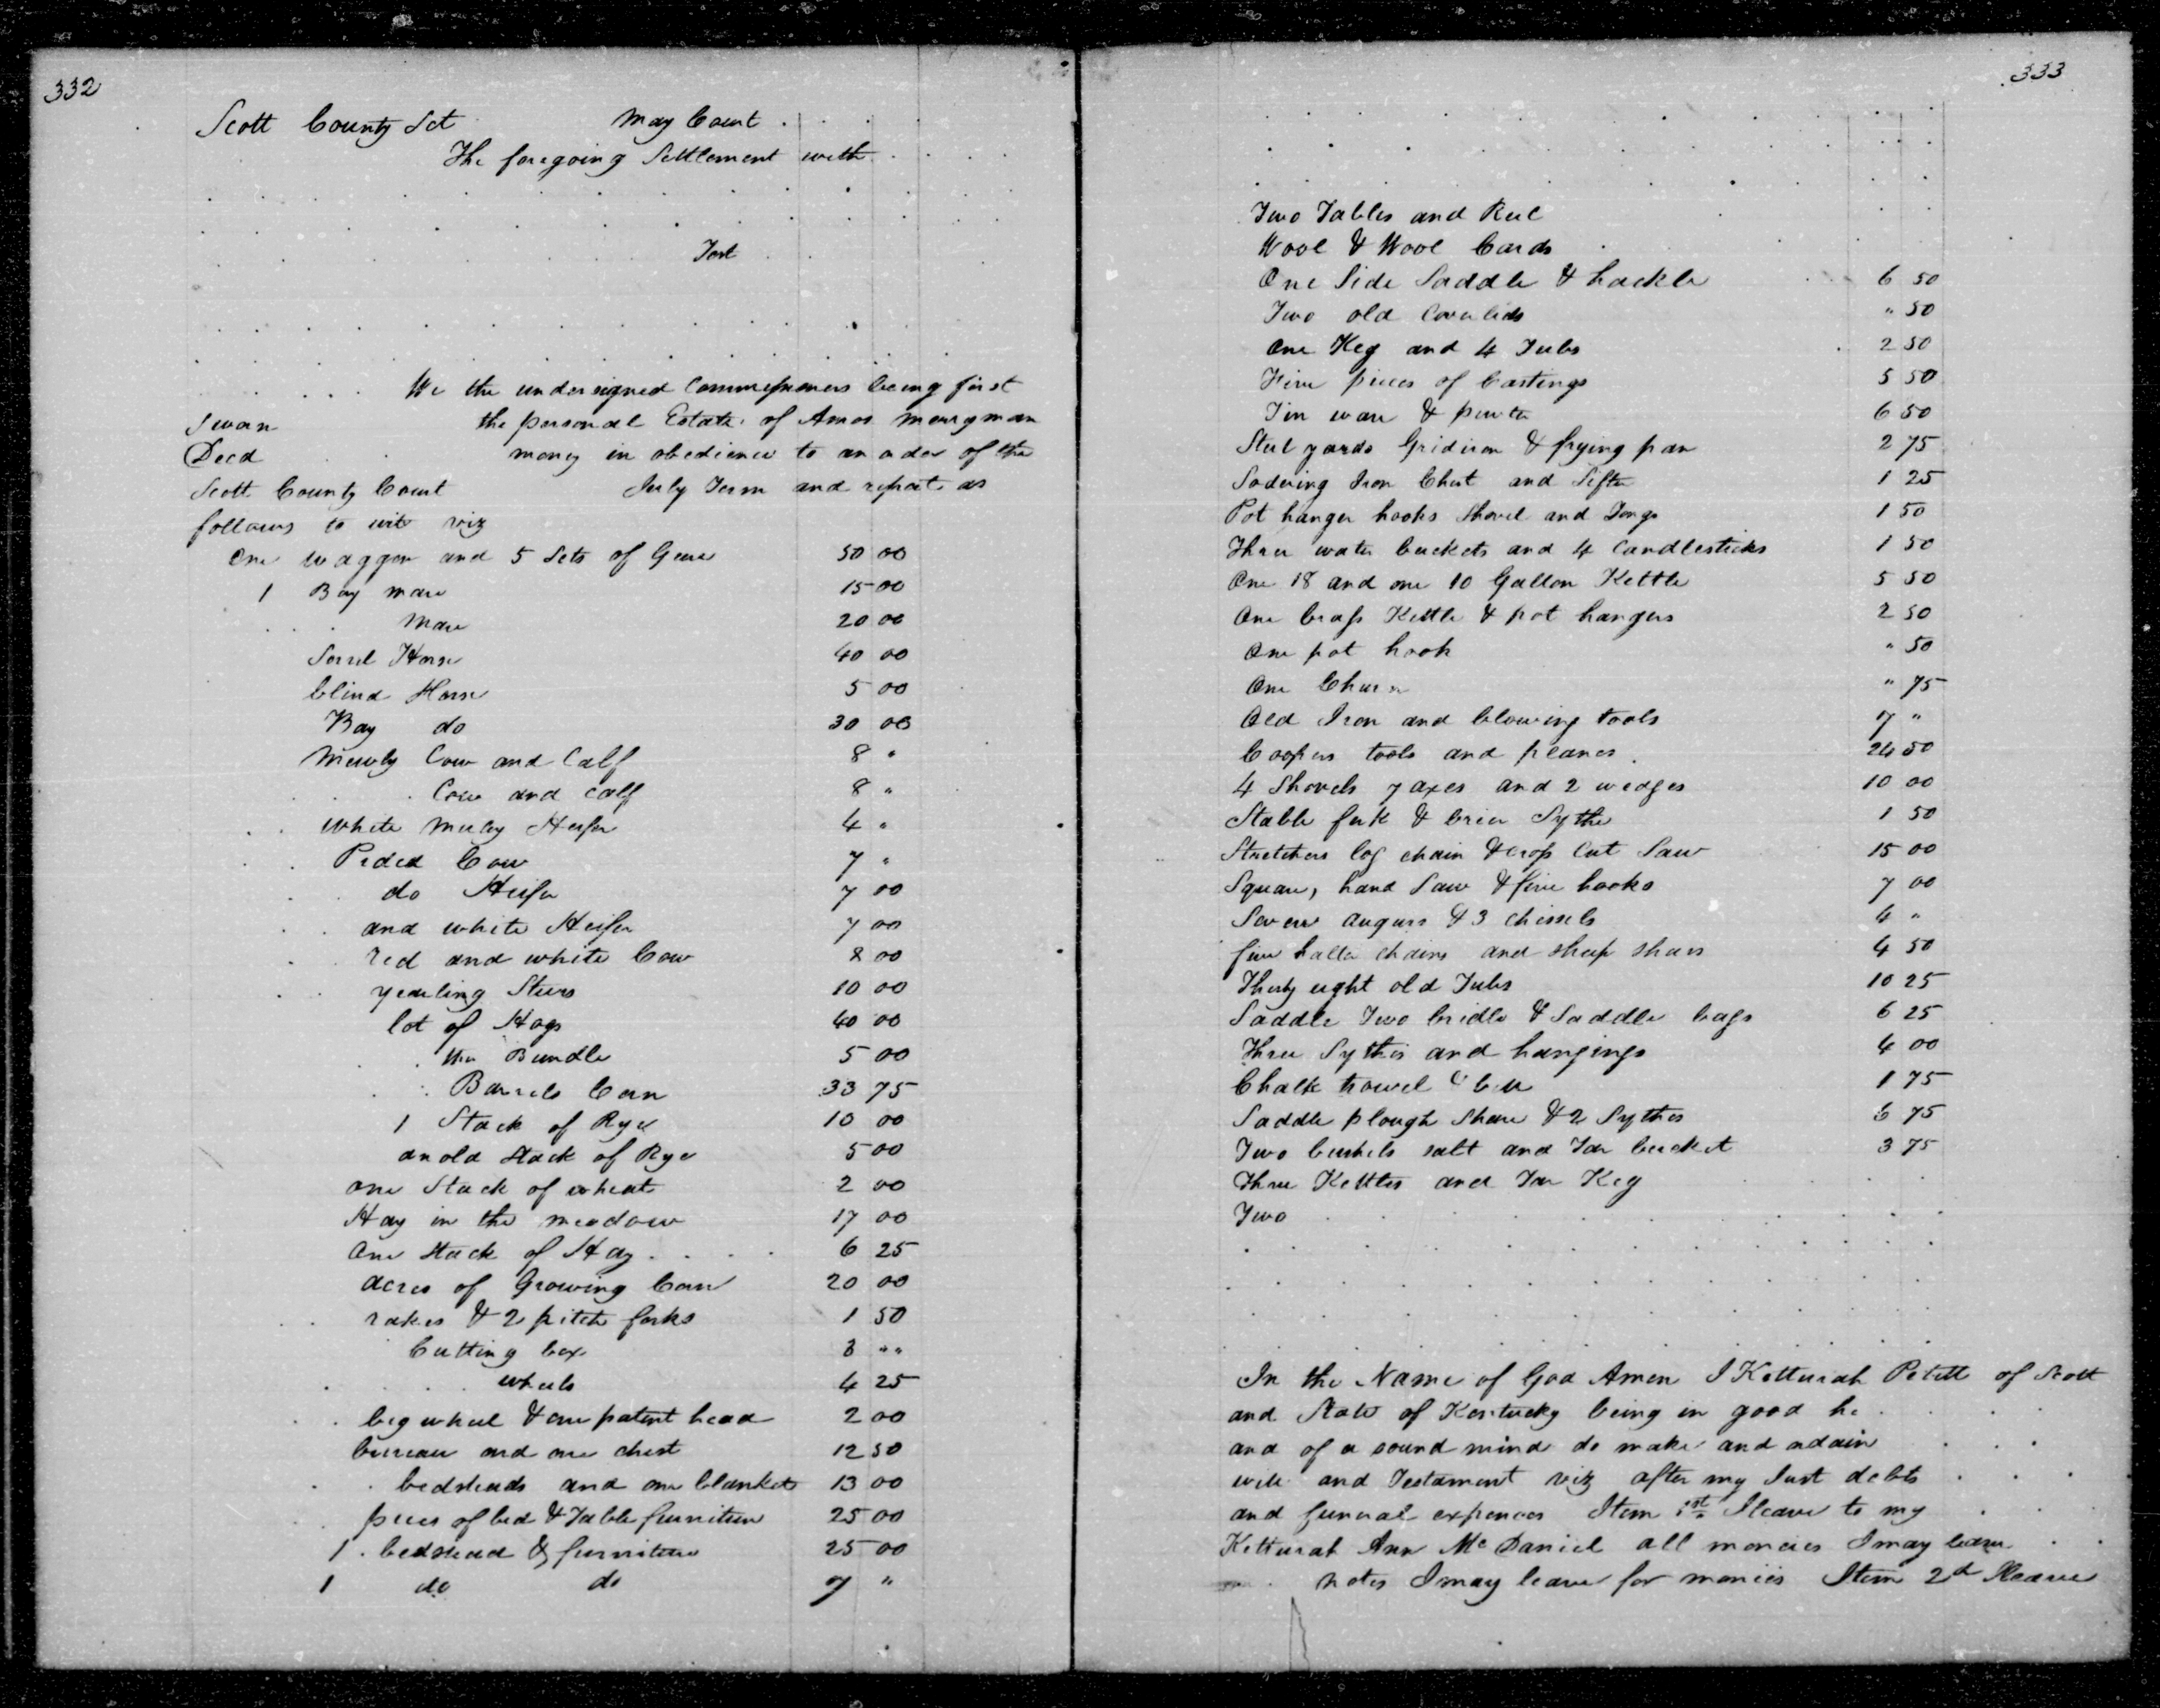 332
Scott County Sct May Court
The foregoing Settlement with
Test
We the undersigned Commissioners being first
Swan the personal Estate of Amos Merryman
Decd money in obedience to an order of the
Scott County Court July Term and report as
follows to wit viz
One waggon and 5 Sets of Geare 50 00
1 Bay mare 15 00
Mare 20 00
Sorrel Horse 40 00
blind Horse 5 00
Bay do 30 00
Cow and Calf 8 "
Cow and calf 8 "
white Heifer 4 "
Pided Cow 7 "
do Heifer 7 00
and white Heifer 7 00
red and white Cow 8 00
yearling Steers 10 00
lot of Hogs 40 00
the Bundle 5 00
Barrels Corn 33 75
1 Stack of Rye 10 00
an old Stack of Rye 5 00
one Stack of wheat 2 00
Hay in the meadow 17 00
One Stack of Hay 6 25
acres of Growing Corn 20 00
rakes & 2 pitch forks 1 50
Cutting box 3 ""
wheels 4 25
big wheel & one patent head 2 00
bureau and one chest 12 50
bedsteads and one blanket 13 00
pices of bed & Table furniture 25 00
1 bedstead & furniture 25 00
1 do do 7 "
333
Two Tables and Reel
Wool & Wool Cards
One Side Saddle & hackle 6 50
Two old Coverlids " 50
One Keg and 4 Tubs 2 50
pieces of Castings 5 50
Tin ware & pewter 6 50
Steel yards Gridiron & frying pan 2 75
Sodering Iron Chest and Sifter 1 25
Pot hanger hooks Shovel and Tongs 1 50
Three water buckets and 4 Candlesticks 1 50
One 18 and one 10 Gallon Kettle 5 50
One brass Kettle & pot hangers 2 50
One pot hook " 50
One Churn " 75
Old Iron and blowing tools 7 "
Coopers tools and planes 24 50
4 Shovels 7 axes and 2 wedges 10 00
Stable fork & brier Sythe 1 50
Stretchers log chain & cross Cut Saw 15 00
Square, hand Saw & five hooks 7 00
Seven augurs & 3 chissels 4 "
five halter chains and sheep shears 4 50
Thirty eight old Tubs 10 25
Saddle Two bridle & Saddle bags 6 25
Three Sythes and hangings 4 00
Chalk trowel & 1 75
Saddle plough Share & 2 Sythes 6 75
Two bushels salt and Tar bucket 3 75
Three Kettles and Tar Keg
Two
In the Name of God Amen I Ketturah Petitt of Scott
and State of Kentucky being in good he
and of a sound mind do make and odain
will and Testament viz after my Just debts
and funeral expences Item 1st I leave to my
Ketturah Ann McDaniel all moneies I may leave
notes I may leave for monies Item 2d I leave